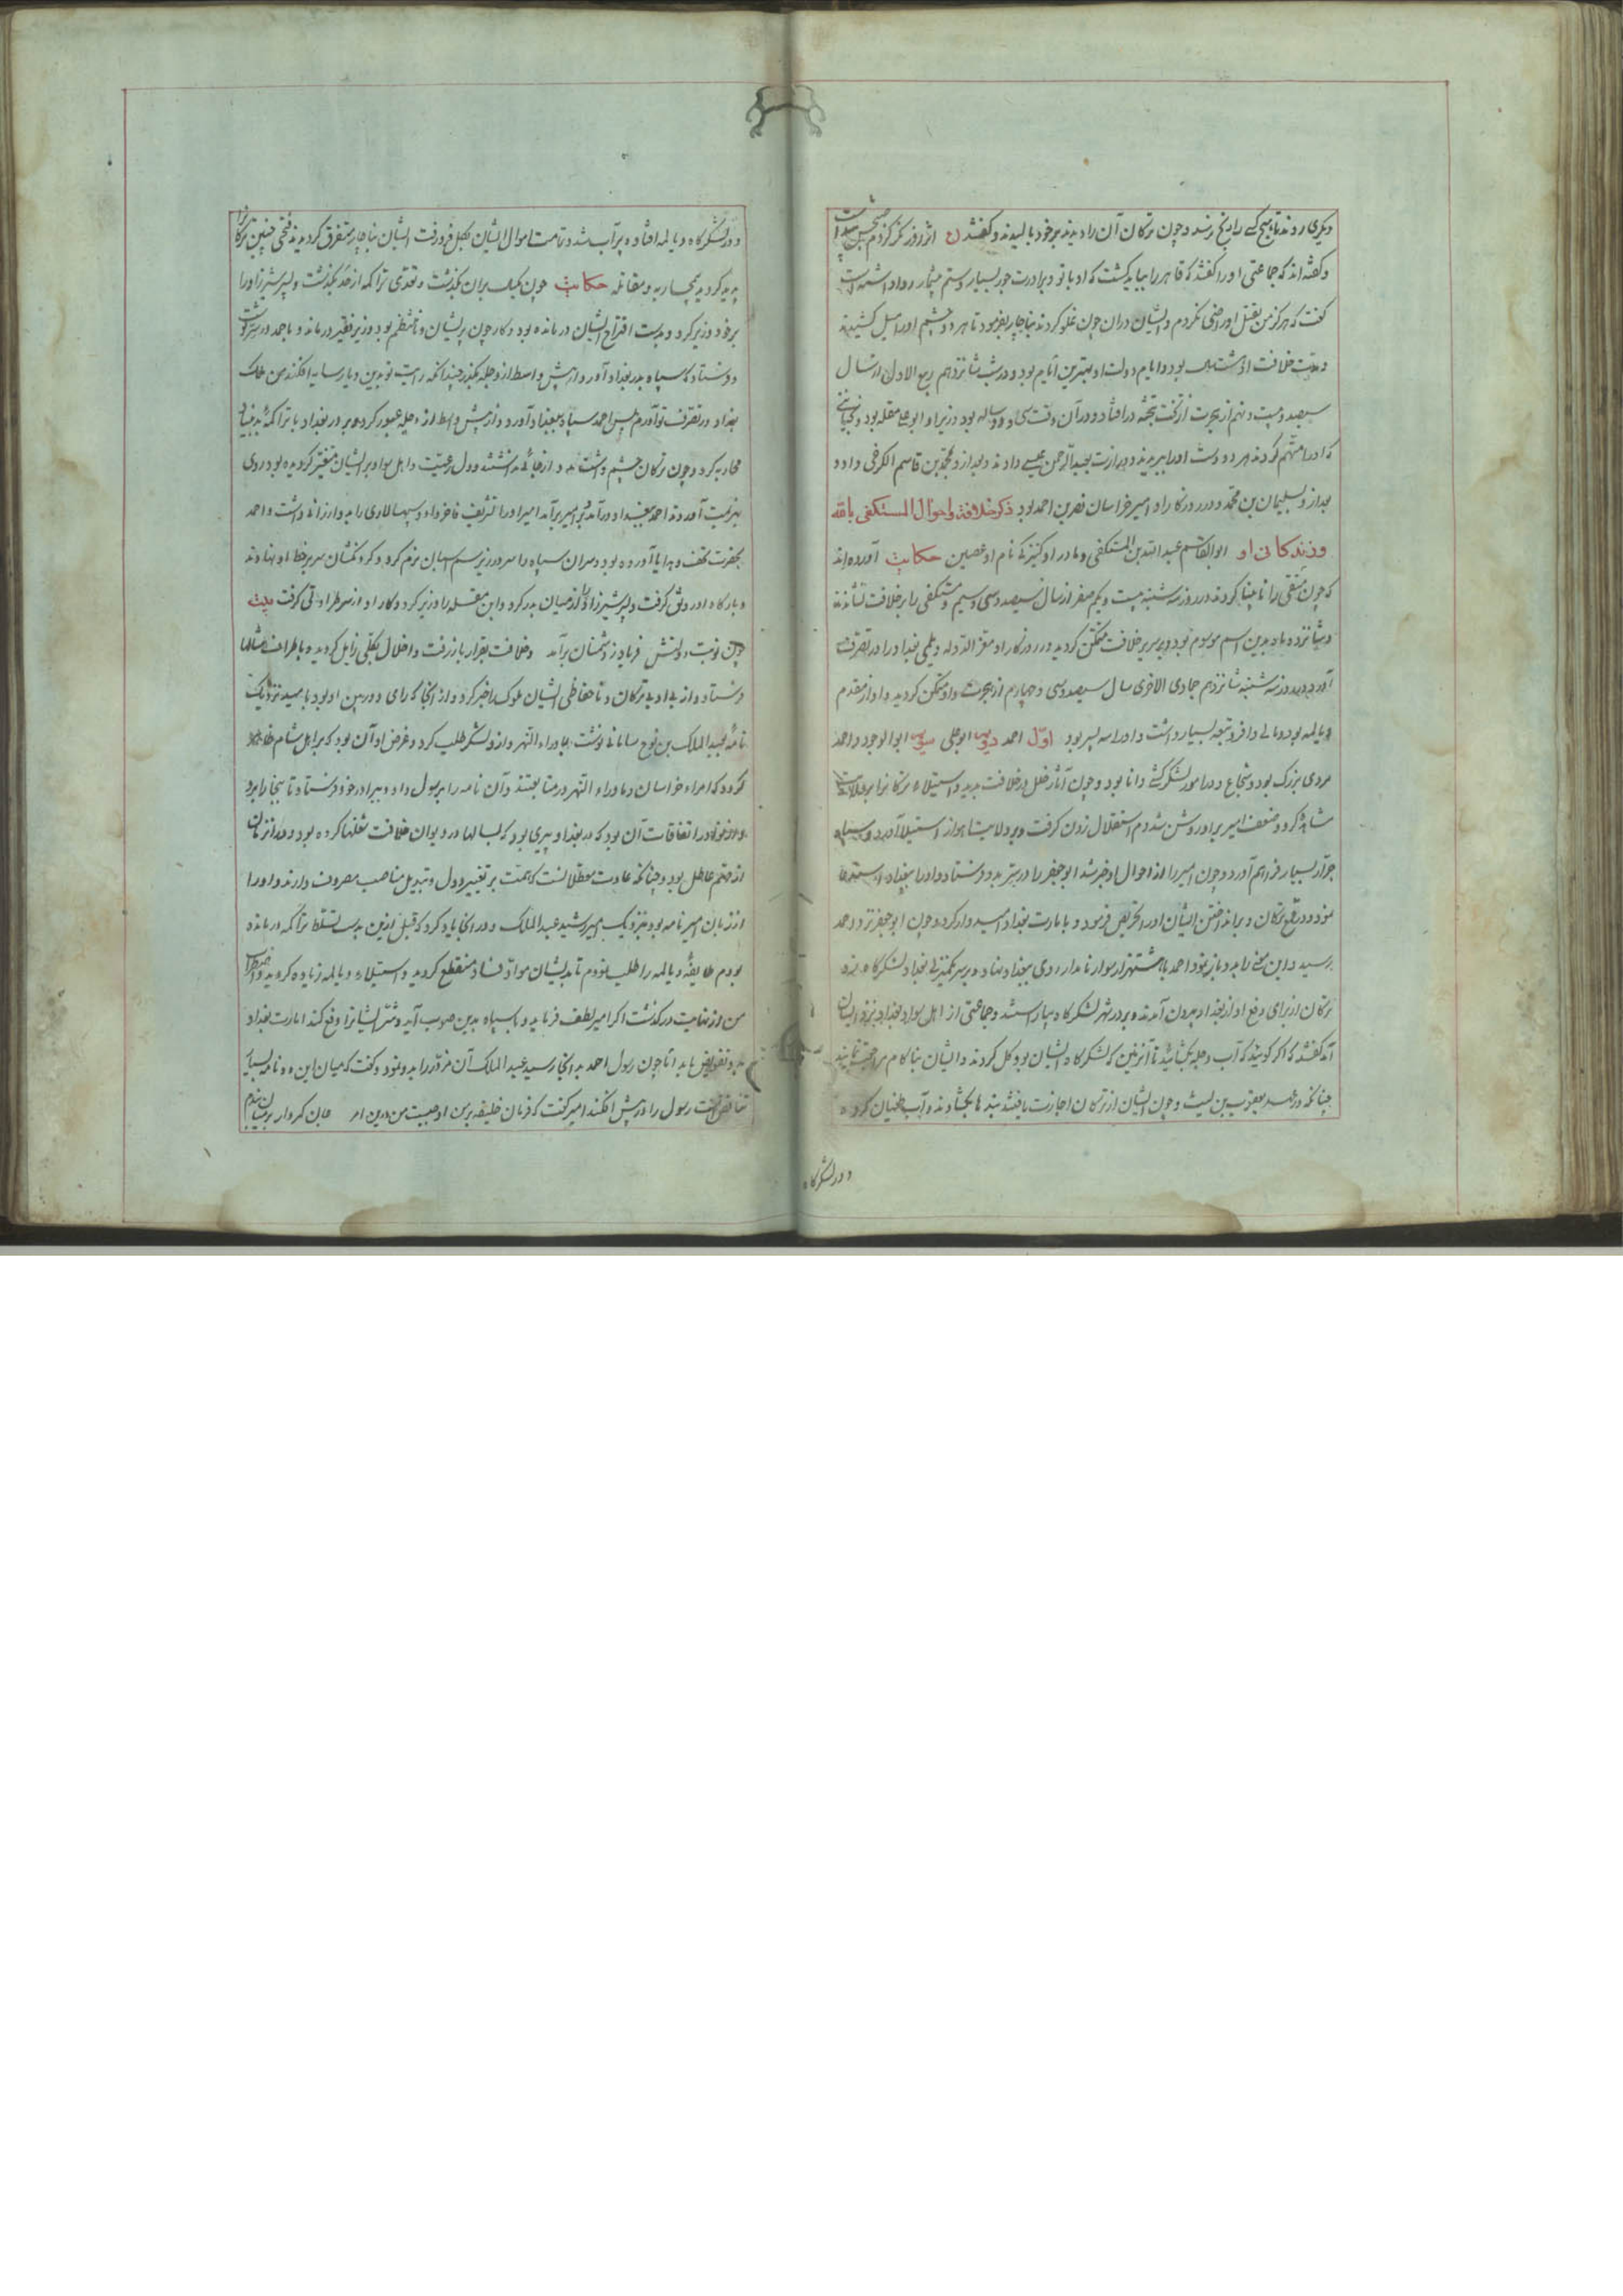 دیگری روند تا هیچ کس را رنج نرسد و چون ترکان آن را دیدند بر خود بالیدند و گفتند ع اثر روز
و گفته اند که جماعتی او را گفتند که قاهر را بباید کشت که او با تو و برادرت جور بسیار و ستم بیشمار روا داشته است
گفت که هرگز من بقتل او راضی نگردم و ایشان در آن چون غلو کردند بناچار بفرمود تا هر دو چشم او را میل کشیدند
و مدت خلافت او شش سال بود و ایام دولت او بهترین ایام بود و در شب شانزدهم ربیع الاول از سال
سیصد و بیست و نهم از هجرت از تخت بتخته در افتاد و در آن وقت سی و دو ساله بود وزیر او ابو علی مقله بود و بخیانتی
که او را متهم کردند هر دو دست او را ببریدند و وزارت بعبد الرحمن عیسی دادند و بعد از و محمد بن قاسم الکرخی را و
بعد از و سلیمان بن محمد و در روزگار او امیر خراسان نصر بن احمد بود ذکر خلافة و احوال المستکفی بالله
و زندکانی او ابو القاسم عبد الله بن المستکفی و مادر او کنیزکی نام او غصین حکایت آورده اند
که چون متقی را نابینا کردند در روز سه شنبه بیست و یکم صفر از سال سیصد و سی و سیم مستکفی را بر خلافت نشاندند
و شانزده ماه بدین اسم موسوم بود و بر سریر خلافت متمکن گردید و در روزگار او معز الدوله دیلمی بغداد را در تصرف
آورد و در روز سه شنبه شانزدهم جمادی الاخری سال سیصد و سی و چهارم از هجرت دارو متمکن گردید و او از مقدم
دیالمه بود و مالی وافر و تبعه بسیار داشت و او را سه پسر بود اول احمد دوم ابو علی سوم ابو الوجود و احمد
مردی بزرگ بود و شجاع و در امور لشکرکشی دانا بود و چون آثار خلل در خلافت بدید و استیلاء ترکان را بر ولایت
مشاهده کرد و ضعف امیر بر او روشن شد دم استقلال زدن گرفت و بر ولایت اهواز استیلا آورد و سپاه
جرار بسیار فراهم آورد و چون امیر را از احوال او خبر شد ابو جعفر را در ستر بدو فرستاد و او را ببغداد استدعا
نمود و در دفع ترکان و برانداختن ایشان او را تحریض فرمود و بامارت بغداد امیدوار کرد و چون ابو جعفر نزد احمد
برسید و این معنی را بدو باز نمود احمد با هشت هزار سوار نامدار روی ببغداد نهاد و بر سر یک منزلی بغداد لشکرگاه بزد
ترکان از برای دفع او از بغداد بیرون آمدند و بر در شهر لشکرگاه بیاراستند و جماعتی از اهل سواد بغداد نزد ایشان
آمد گفتند که اگر گویند که آب دجله بگشائید تا آن زمین که لشکرگاه ایشان بود گل کردند و ایشان بناکام مراجعت نمایند
چنانکه در عهد یعقوب بن لیث و چون ایشان از ترکان اجازت یافتند بندها بگشادند و آب طغیان کرده
و در لشکرگاه
و در لشکرگاه دیالمه افتاده پر آب شد و تمامت اموال ایشان بگل فرو رفت ایشان بناچار متفرق گردیدند فتحی چنین ترکان را
پدید گردید بی محاربه و مقاتله حکایت چون یک سال بر آن بگذشت و تعدی تراکمه از حد بگذشت و پسر شیرزاد را
بر خود وزیر کرد و بدست اقتراح ایشان درمانده بود و کار چون پریشان و نامنتظم بود وزیر فقیر درماند و باحمد در ستر نوشت
و فرستاد که سپاه بدر بغداد آور و از پیش واسط از دجله بگذر چندانکه رایت تو بدین دیار سایه افکند من خاک
بغداد در تصرف تو آورم پس احمد سپاه ببغداد آورد و از پیش واسط از دجله عبور کرد و بر در بغداد با تراکمه
محاربه کرد و چون ترکان حشم و اهل سواد بر ایشان متغیر گردیده بود روی
بهزیمت آوردند احمد ببغداد در آمد و امیر بر آمد امیر او را تشریف فاخر داد و سپهسالاری را بدو ارزانی داشت و احمد
بحضرت تحف و هدایا آورده بود و سران سپاه را سر در زیر نرم کرد و گردنکشان سر بر خط او نهادند
و بارگاه او رونق گرفت و پسر شیرزاد را از میان بدر کرد و ابن مقله را وزیر کرد و کار او از سر طراوتی گرفت بیت
چون نوبت دولتش فریاد ز دشمنان برآمد و خلافت بقرار باز رفت و اخلال بکلی زایل گردید و باطراف مثالها
فرستاد و از بی ادبی ترکان و ناحفاظی ایشان ملوک را خبر کرد و از آنجا که رای دوربین او بود
نامه بعبد الملک بن نوح سامانی نوشت بماوراء النهر و ازو لشکر طلب کرد و غرض او آن بود که بر اهل شام ظاهر
گردد که امراء خراسان و ماوراء النهر در متابعتند و آن نامه را برسول داد و فرستاد تا ببخارا برد
و از نوادر اتفاقات آن بود که در بغداد پیری بود که سالها در دیوان خلافت شغلها کرده بود و در آن زمان
از قلم عاطل بود و چنانکه عادت معطلانست که همت بر تغییر دول و تبدیل مناصب مصروف دارند و او را
از زبان امیر نامه بود بنزدیک امیر رشید عبد الملک و در آنجا یاد کرد که قبل ازین بدست تسلط تراکمه درمانده
بودم طایفه دیالمه را طلب نمودم تا بدیشان مواد فساد منقطع گردید و استیلاء دیالمه زیاده گردید و اضطراب
من از نهایت در گذشت اگر امیر لطف فرماید و با سپاه بدین صوب آید و شر ایشانرا دفع کند امارت بغداد
بدو تفویض یابد اما چون رسول احمد بدانجا رسید عبد الملک آن مزور را بدو نمود و گفت که میان این دو نامه بسیار
تناقض است رسول را در پیش افکند امیر گفت که فرمان خلیفه بر من واجبست من درین امر